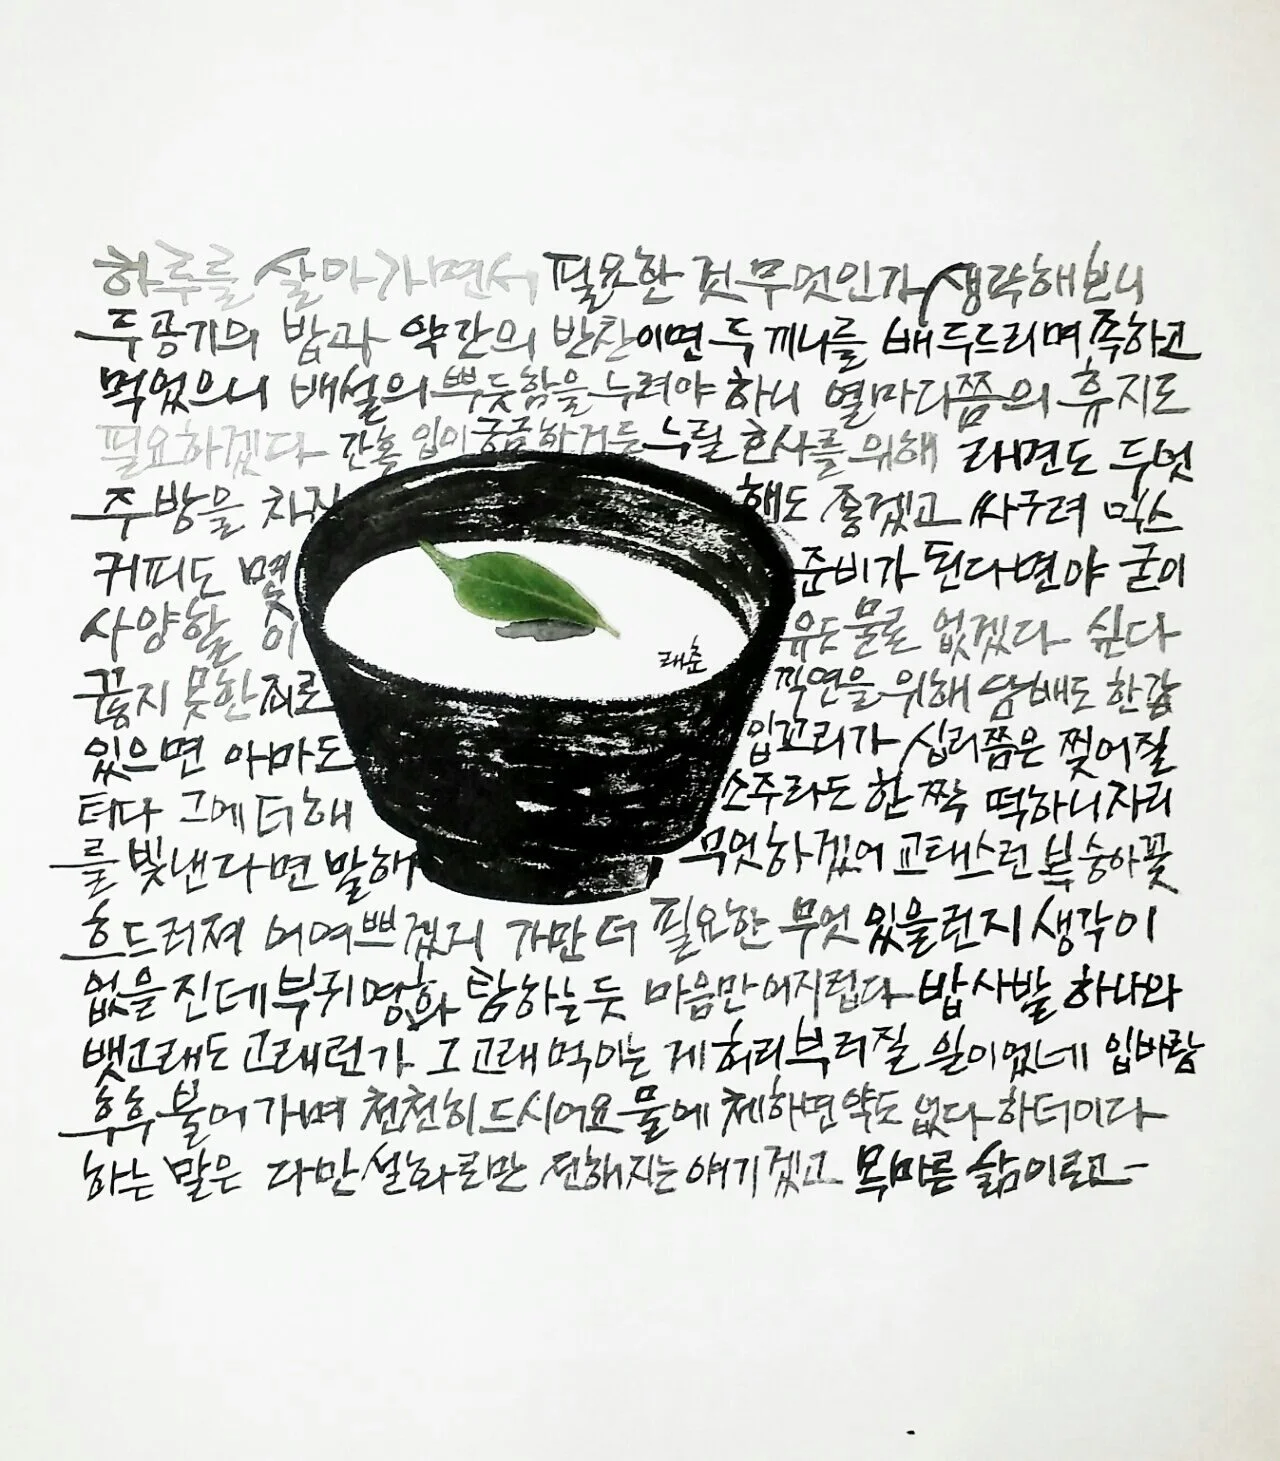 하루를 살아가면서 필요한 것 무엇인가 생각해보니
두 공기의 밥과 약간의 반찬이면 두 끼니를 배 두드리며 족하고
먹었으니 배설의 뿌듯함을 누려야 하니 열 마디쯤의 휴지도
필요하겠다 간혹 입이 궁금하거든 누릴 호사를 위해 라면도 두엇
주방을 차지 해도 좋겠고 싸구려 믹스
커피도 몇 준비가 된다면야 굳이
사양할 이 유는 물론 없겠다 싶다
끊지 못한 죄로 끽연을 위해 담배도 한 갑
있으면 아마도 입꼬리가 십리쯤은 찢어질
터다 그에 더해 소주라도 한 짝 떡하니 자리
를 빛낸다면 말해 무엇하겠어 교태스런 복숭아꽃
흐드러져 어여쁘겠지 가만 더 필요한 무엇 있을런지 생각이
없을진데 부귀영화 탐하는 듯 마음만 어지럽다 밥사발 하나와
뱃고래도 고래런가 그 고래 먹이는 게 허리 부러질 일이었네 입바람
후후 불어가며 천천히 드시어요 물에 체하면 약도 없다 하더이다
하는 말은 다만 설화로만 전해지는 얘기겠고 목마른 삶이로고-
래춘